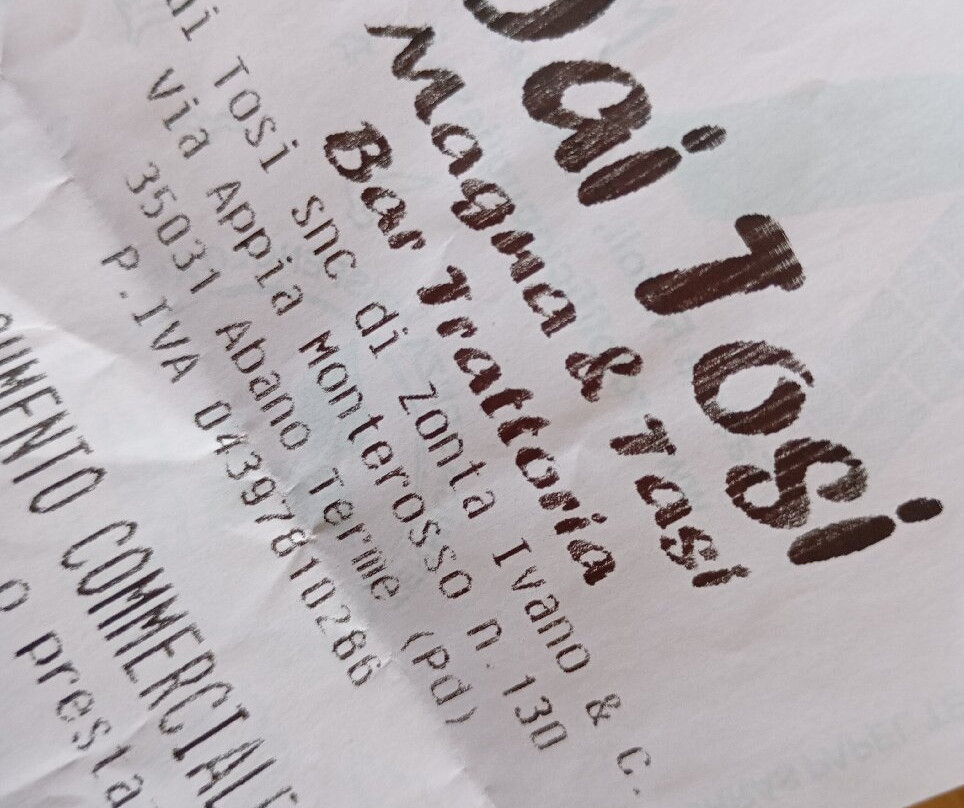 Dai Tosi
Magna & Tasi
Bar Trattoria
Tosi snc di Zonta Ivano & C.
Via Appia Monterosso n.130
35031 Abano Terme (Pd)
P.IVA 04397810286
COMMERCIALE
o